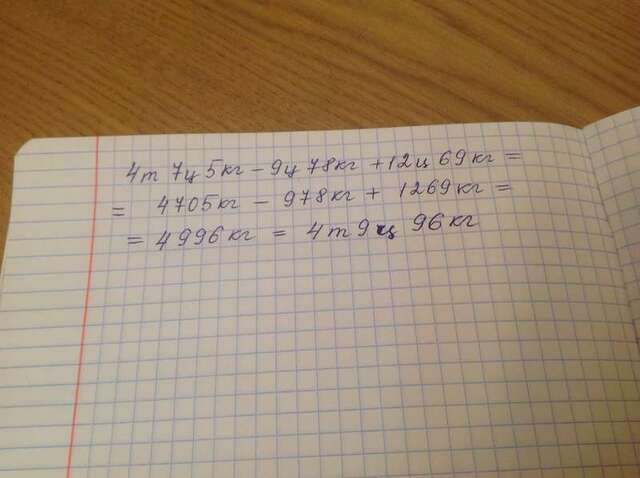 4т 7ц 5кг - 9ц 78кг + 12ц 69кг =
= 4705кг - 978кг + 1269кг =
= 4996кг = 4т 9ц 96кг